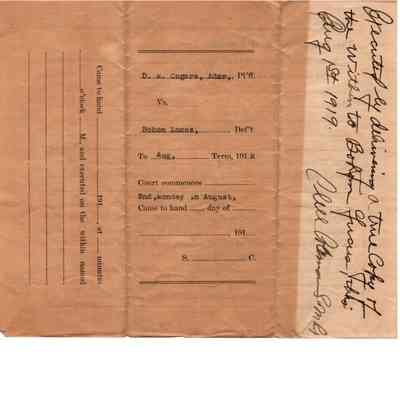 Came to hand 191 at minutes
o'clock M., and executed on the within named
D. W. Ongars, Admr., Pl'ff.
Vs.
Bohom Lucas, Def't
To Aug. Term, 191
Court commences
2nd, monday in August,
Came to hand day of
191
S. C.
Executed by delivering a true Copy of
the within to
Aug 1st 1919.
Will